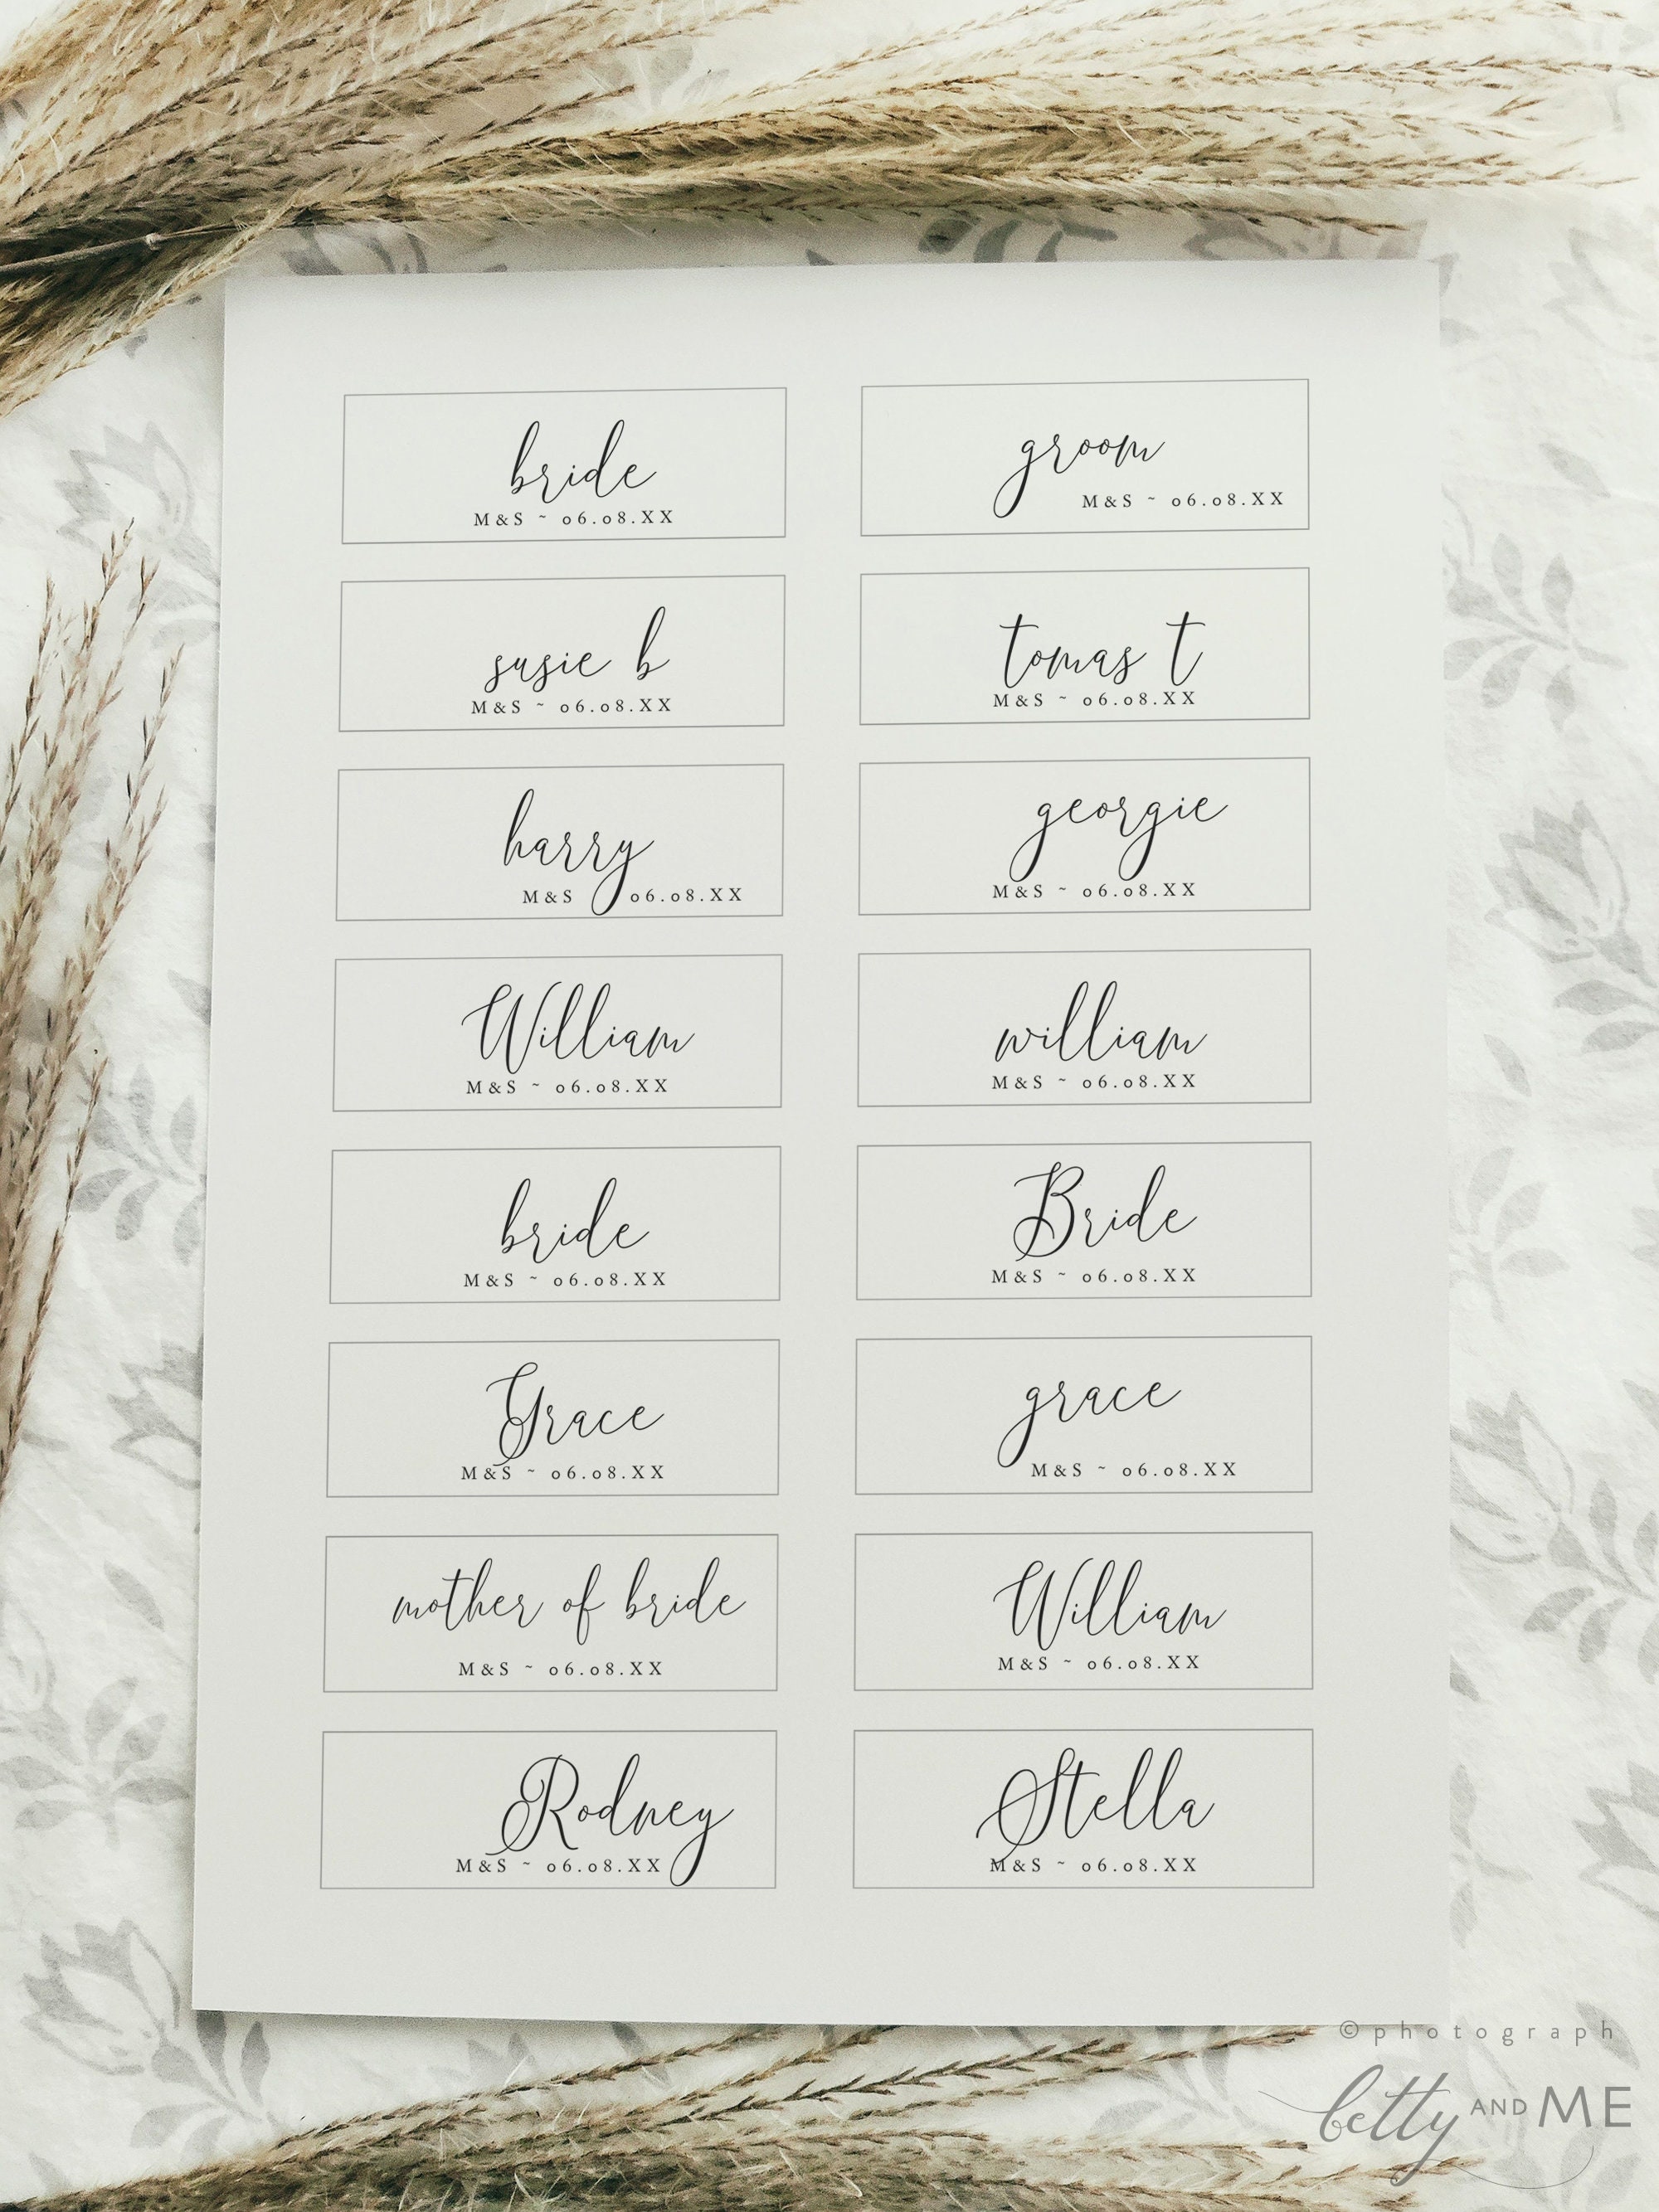 bride
M&S ~ 06.08.XX
groom
M&S ~ 06.08.XX
susie b
M&S ~ 06.08.XX
tomas t
M&S ~ 06.08.XX
harry
M&S 06.08.XX
georgie
M&S ~ 06.08.XX
William
M&S ~ 06.08.XX
william
M&S ~ 06.08.XX
bride
M&S ~ 06.08.XX
Bride
M&S ~ 06.08.XX
Grace
M&S ~ 06.08.XX
grace
M&S ~ 06.08.XX
mother of bride
M&S ~ 06.08.XX
William
M&S ~ 06.08.XX
Rodney
M&S ~ 06.08.XX
Stella
M&S ~ 06.08.XX
©photograph
betty AND ME